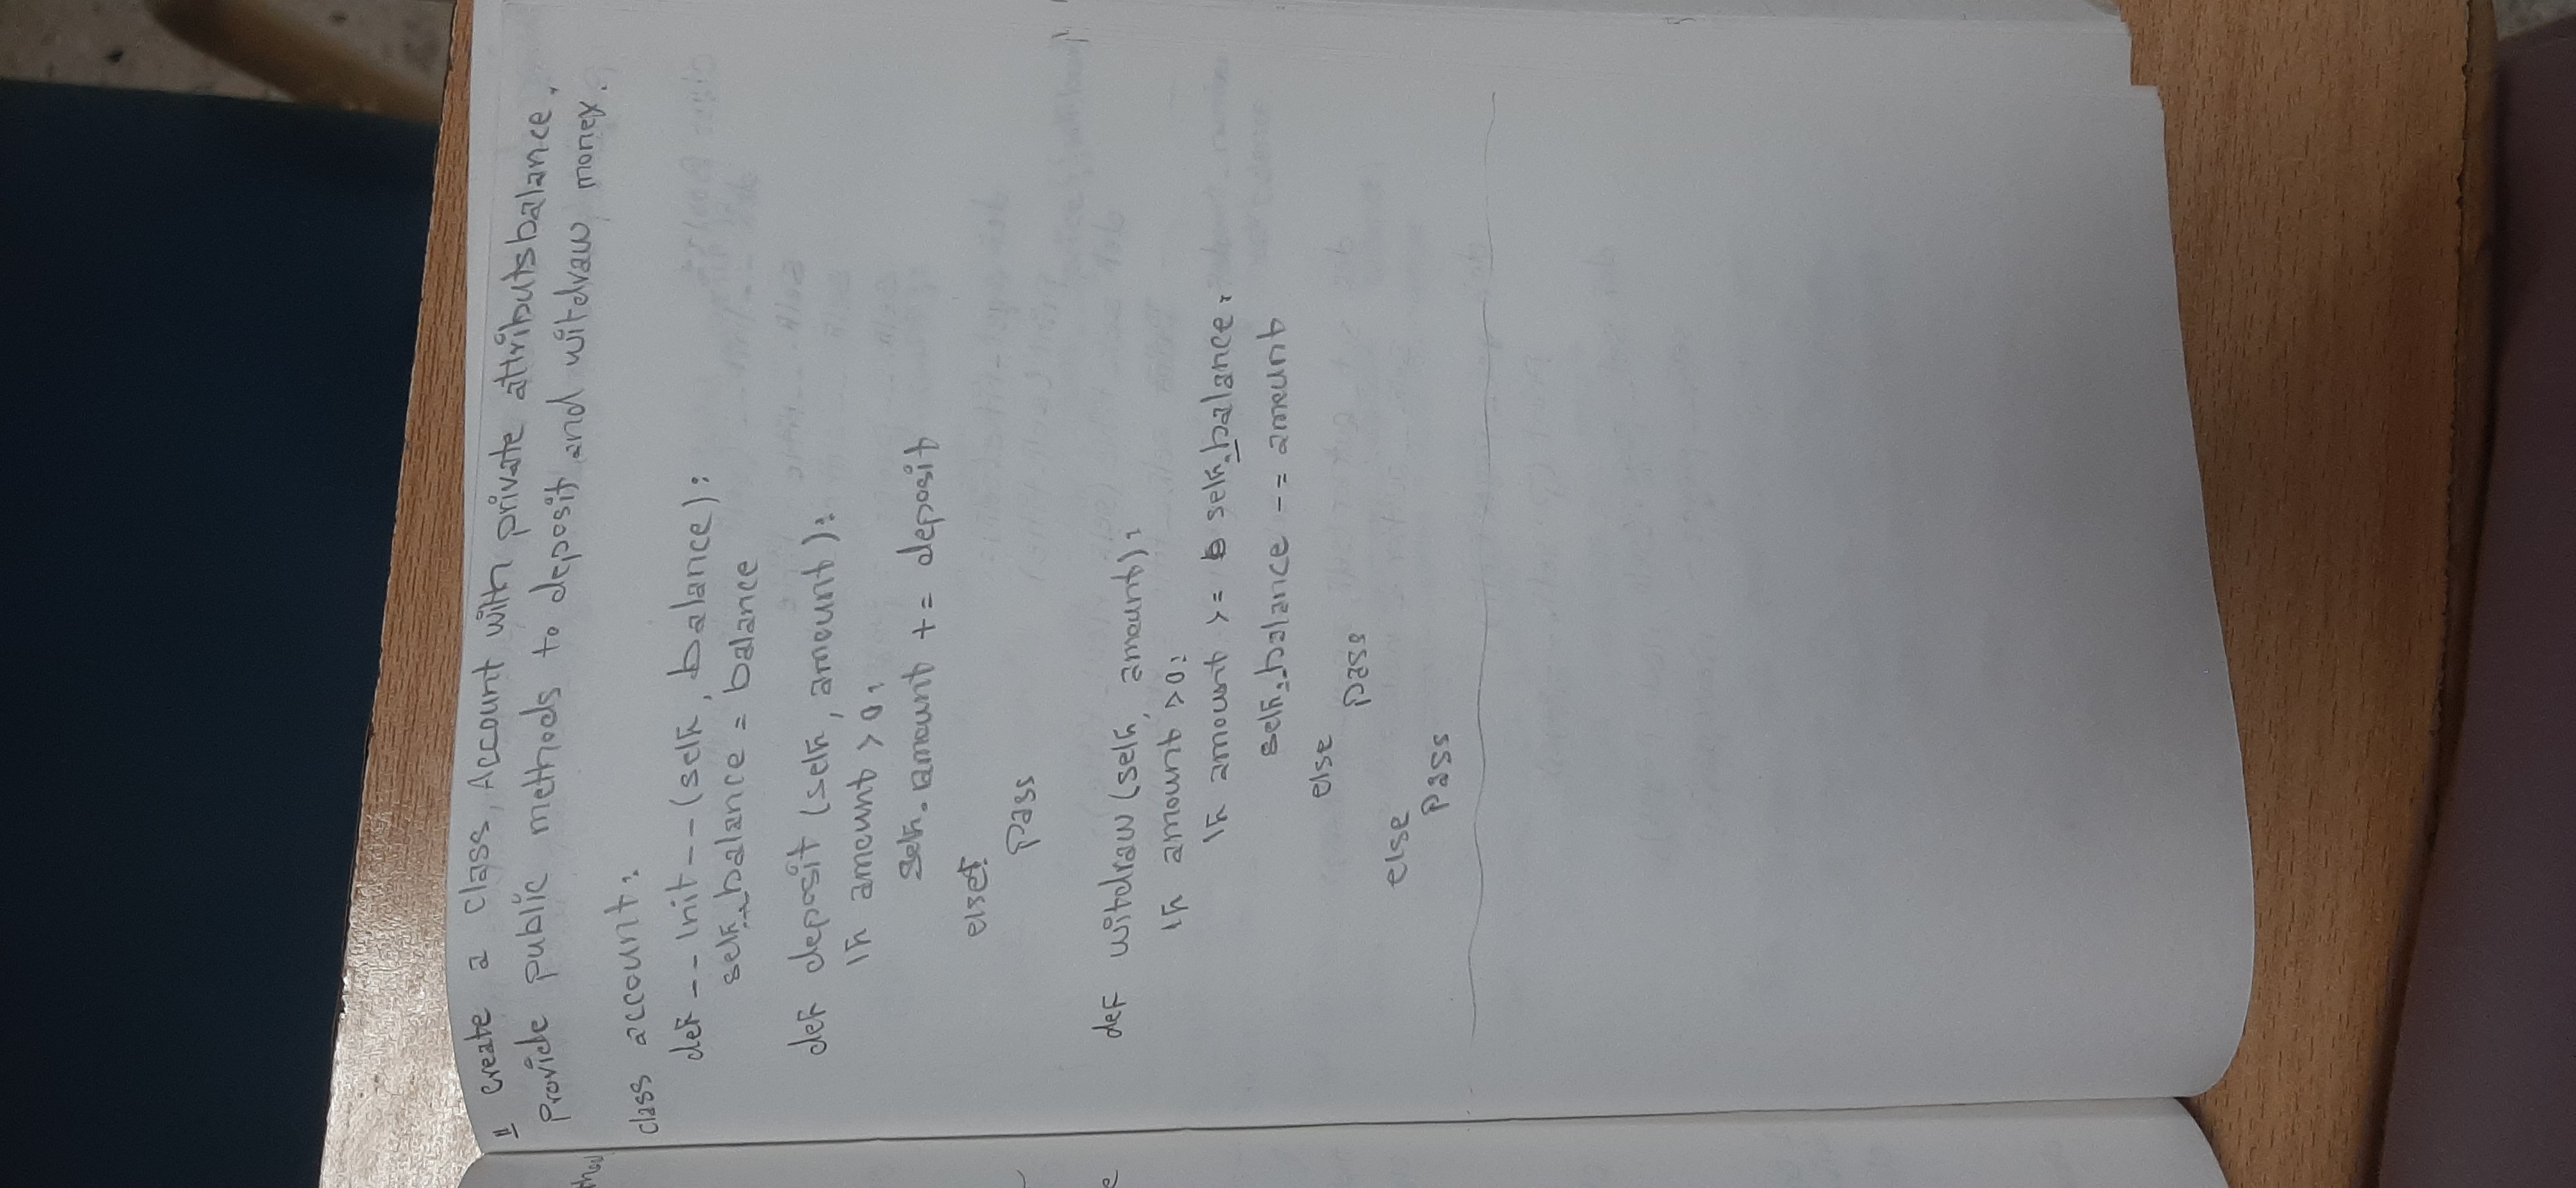 1 Create a class, Account with private attributs balance.
Provide public methods to deposit and witdraw money.
class account:
def __init__(self, balance):
self.__balance = balance
def deposit (self, amount):
if amount > 0:
self.amount += deposit
else:
pass
def witdraw (self, amount):
if amount > 0:
if amount >= self._balance:
self.__balance -= amount
else
pass
else
pass